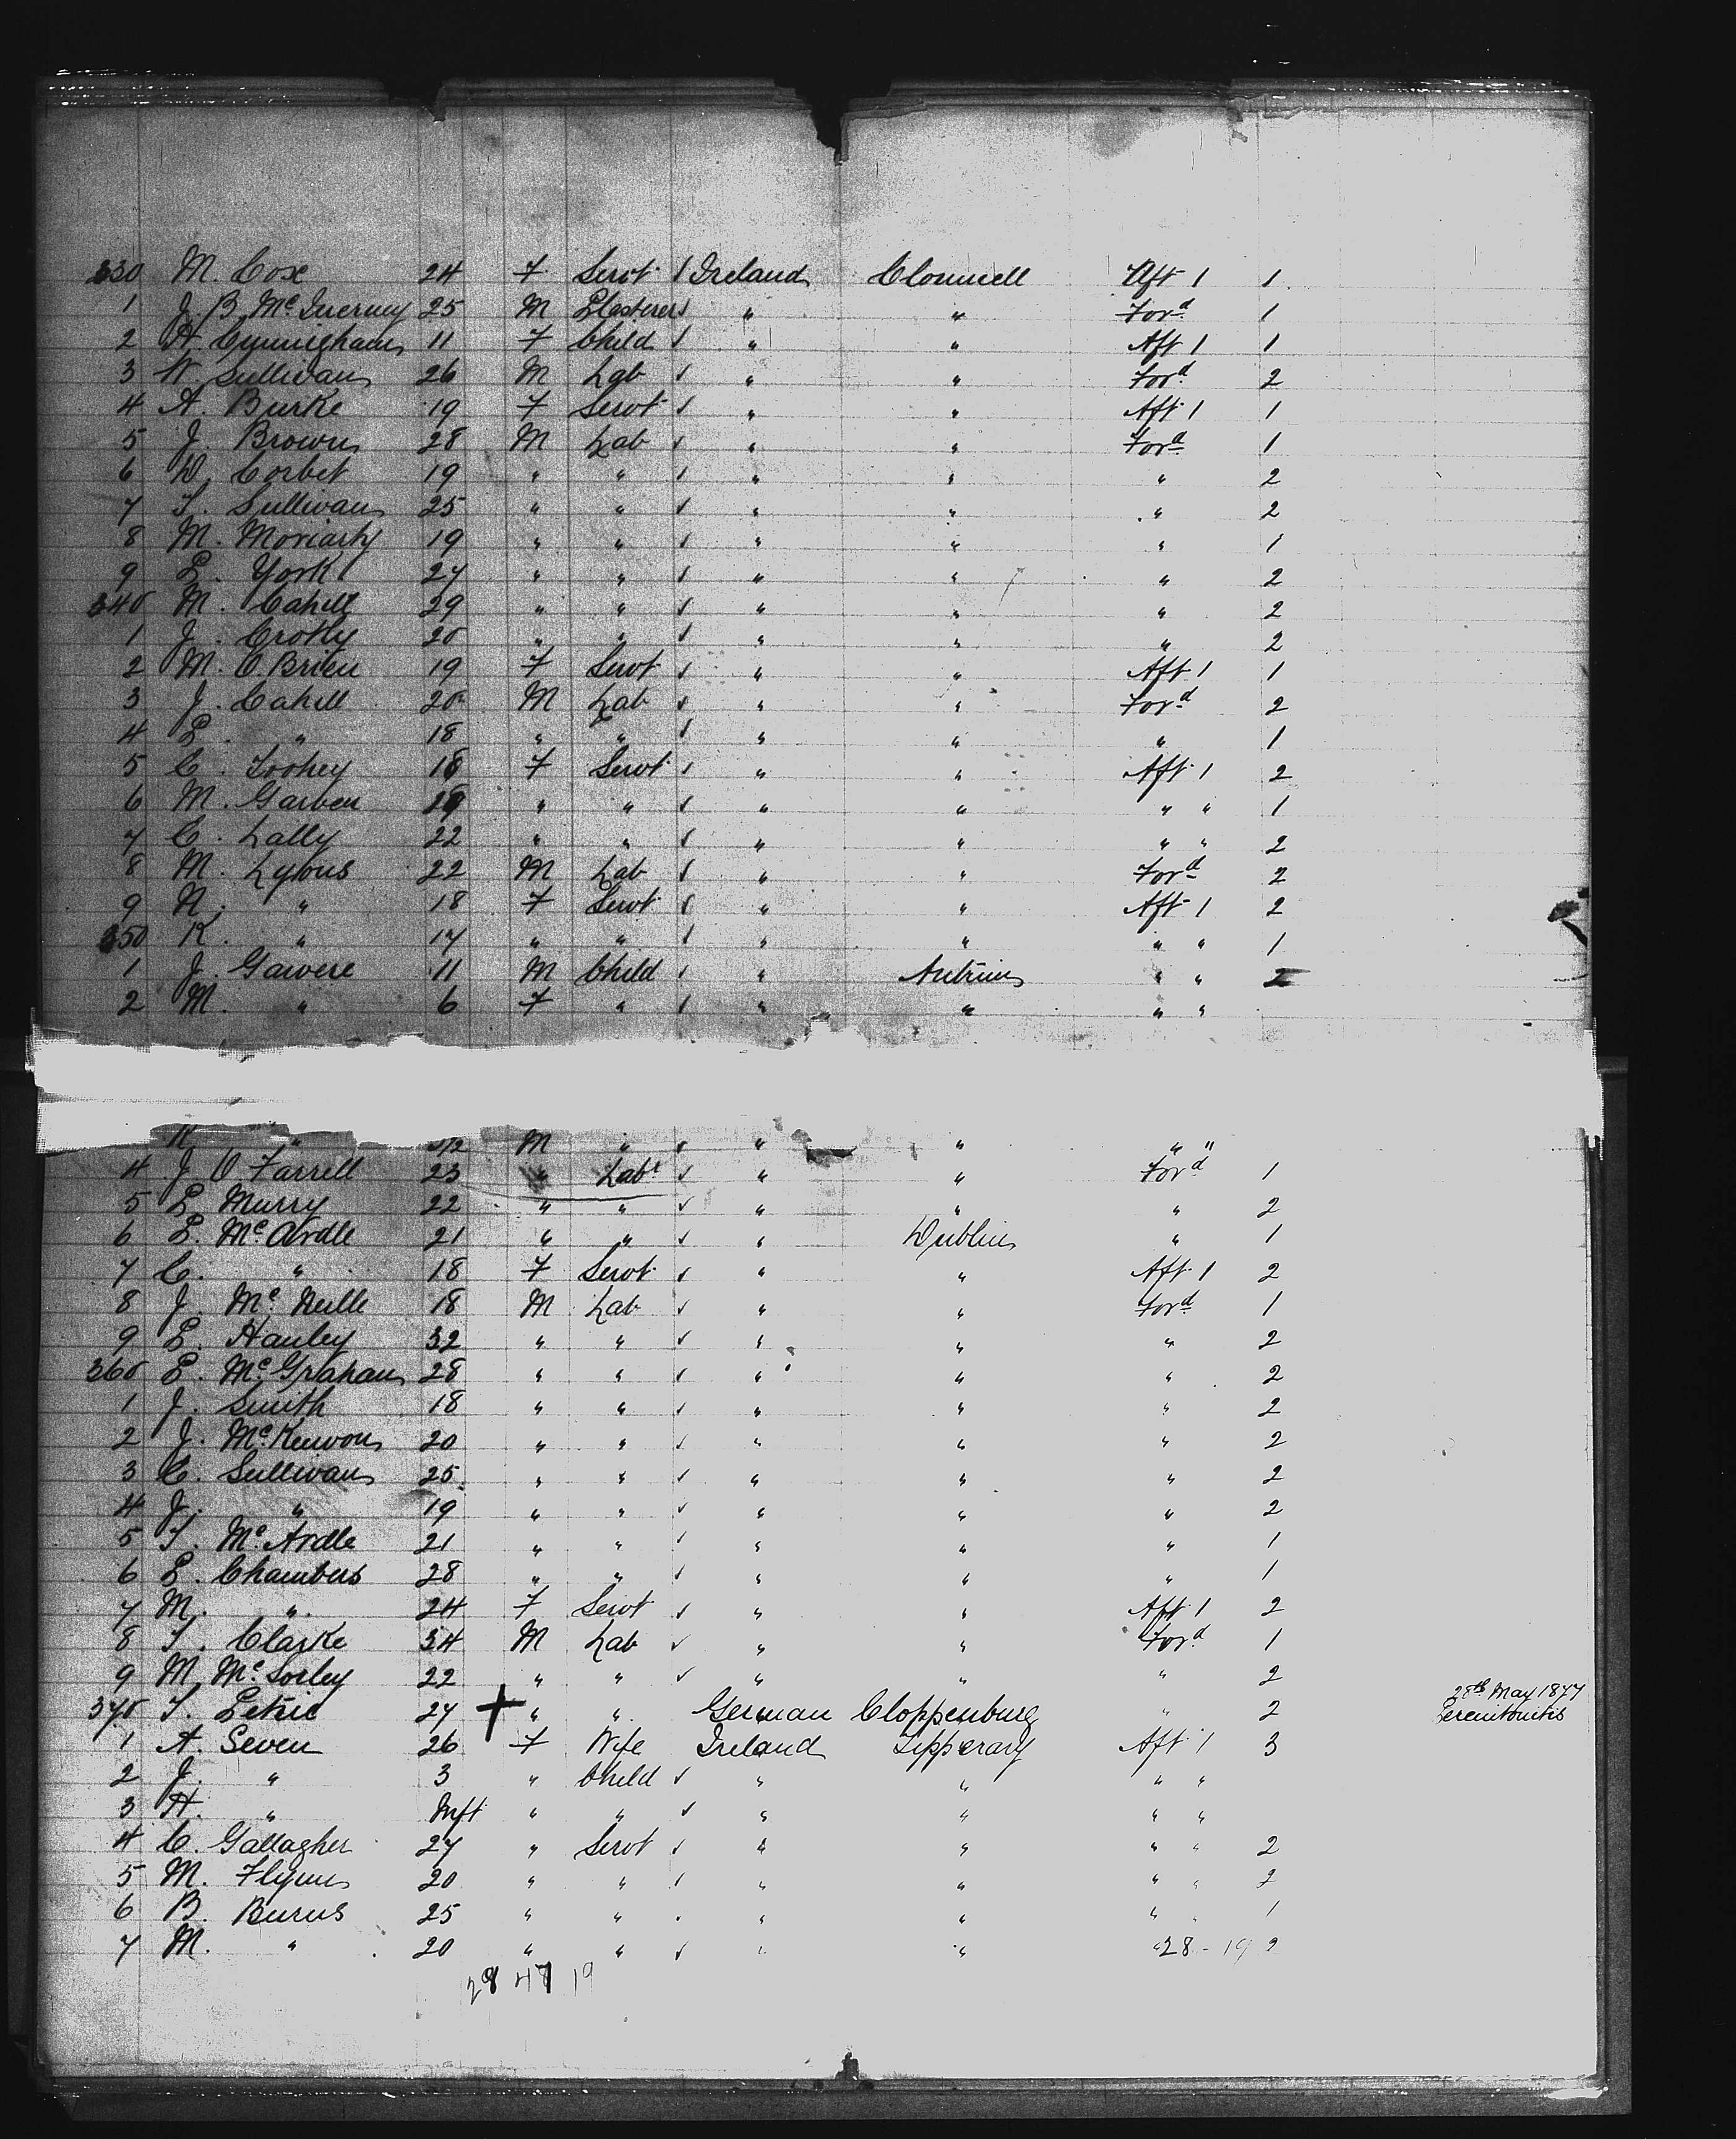 330 M. Cox 24 F Servt ✓ Ireland Clonmell Aft 1 1
1 J. B. Mc 25 M Plasterer ✓ " " Ford 1
2 H Cunningham 11 F Child ✓ " " Aft 1 1
3 W Sullivan 26 M Lab ✓ " " Ford 2
4 A. Burke 19 F Servt ✓ " " Aft 1 1
5 J. Brown 28 M Lab ✓ " " Ford 1
6 D. Corbet 19 " " ✓ " " " 2
7 T. Sullivan 25 " " ✓ " " " 2
8 M. Moriarty 19 " " ✓ " " " 1
9 P. York 27 " " ✓ " " " 2
340 M. Cahill 29 " " ✓ " " " 2
1 J. Crotty 20 " " ✓ " " " 2
2 M. O Brien 19 F Servt ✓ " " Aft 1 1
3 J. Cahill 20 M Lab ✓ " " Ford 2
4 P. " 18 " " ✓ " " " 1
5 C. Toohey 18 F Servt ✓ " " Aft 1 2
6 M. Garven " " ✓ " " " " 1
7 C. Lally 22 " " ✓ " " " " 2
8 M. Lyons 22 M Lab ✓ " " Ford 2
9 N. " 18 F Servt ✓ " " Aft 1 2
350 K. " 17 " " ✓ " " " " 1
1 J. Gawere 11 M Child ✓ " Antrim " " 2
2 M. " 6 F " ✓ " " " "
" M " ✓ " " " "
4 J O Farrell 23 " Labr ✓ " " Ford 1
5 P. Murry 22 " " ✓ " " " 2
6 P. Mc Ardle 21 " " ✓ " Dublin " 1
7 C. " 18 F Servt ✓ " " Aft 1 2
8 J. Mc Neille 18 M Lab ✓ " " Ford 1
9 P. Hanley 32 " " ✓ " " " 2
360 P. Mc Grahan 28 " " ✓ " " " 2
1 J. Smith 18 " " ✓ " " " 2
2 J. Mc Keuvon 20 " " ✓ " " " 2
3 C. Sullivan 25 " " ✓ " " " 2
4 J. " 19 " " ✓ " " " 2
5 T. Mc Ardle 21 " " ✓ " " " 1
6 P. Chambers 28 " " ✓ " " " 1
7 M. " 24 F Servt ✓ " " Aft 1 2
8 T. Clarke 34 M Lab ✓ " " Ford 1
9 M. Mc Sorley 22 " " ✓ " " " 2
370 T. Petrie 27 + " " German Cloppenburg " 2 28th May 1877 Perenitonitis
1 A. Seven 26 F Wife Ireland Tipperary Aft 1 3
2 J. " 3 " Child ✓ " " " "
3 H. " Inft " " ✓ " " " "
4 C. Gallagher 27 " Servt ✓ " " " " 2
5 M. Flynn 20 " " ✓ " " " " 2
6 B. Burns 25 " " " " " " 1
7 M. " 20 " " ✓ " " " 28 - 19 2
19